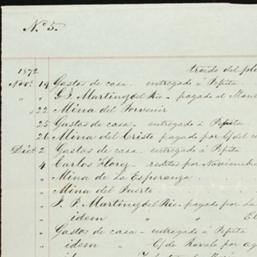 N. 5.
traido del
1872
Nov. 19 Gastos de casa - entregado à Pepita
" " J. P. Martinez del Rio - pagado al
" 22 Mina del Porvenir
25 Gastos de casa - entregado à Pepita
26 Mina del Cristo pagado por
Dic. 2 Gastos de casa - entregado à Pepita
4 Carlos - reditos por Noviembre
" Mina de la Esperanza
" Mina del Fuerte
" J. P. Martinez del Rio - pagado por La
" idem " "
" Gastos de casa - entregado à Pepita
" idem " - por
idem